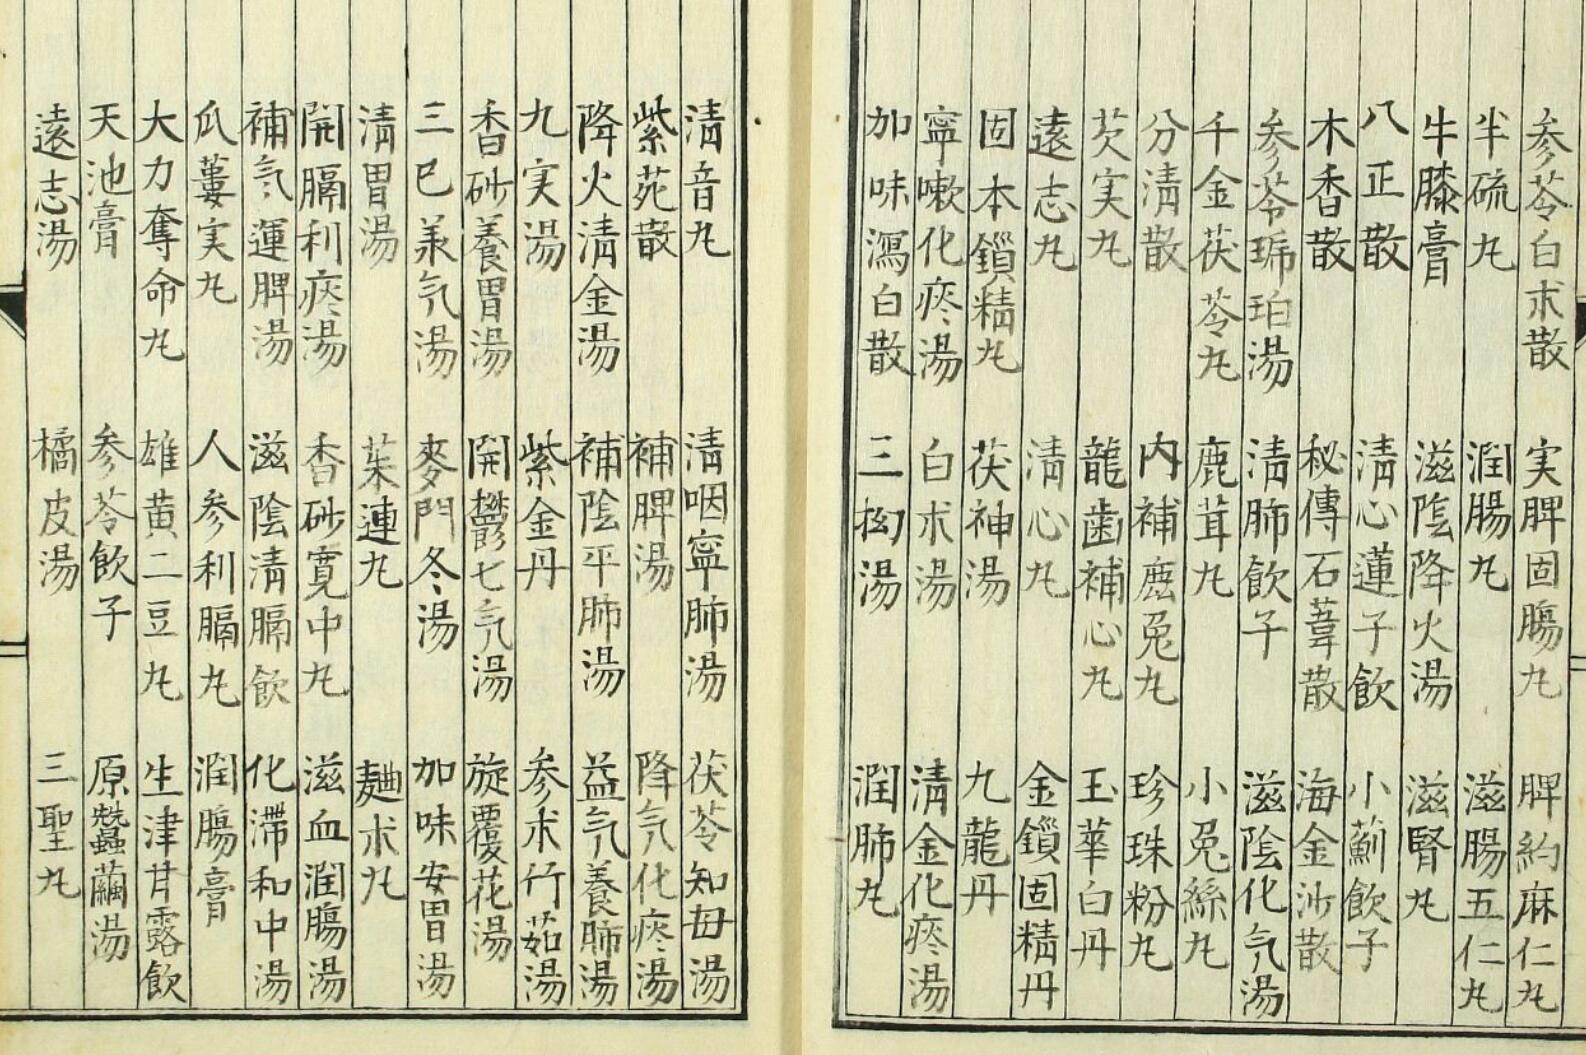 参苓白朮散 実脾固腸丸 脾約麻仁丸
半硫丸 潤腸丸 滋腸五仁丸
牛膝膏 滋陰降火湯 滋腎丸
八正散 清心蓮子飲 小薊飲子
木香散 秘傳石葦散 海金沙散
参苓琥珀湯 清肺飲子 滋陰化气湯
千金茯苓丸 鹿茸丸 小兎絲丸
分清散 内補鹿兎丸 珍珠粉丸
芡実丸 龍歯補心丸 玉華白丹
遠志丸 清心丸 金鎖固精丹
固本鎖精丸 茯神湯 九龍丹
寧嗽化痰湯 白朮湯 清金化痰湯
加味瀉白散 三拗湯 潤肺丸
清音丸 清咽寧肺湯 茯苓知母湯
紫菀散 補脾湯 降气化痰湯
降火清金湯 補陰平肺湯 益气養肺湯
九実湯 紫金丹 参朮竹茹湯
香砂養胃湯 開鬱七气湯 旋覆花湯
三巳承气湯 麥門冬湯 加味安胃湯
清胃湯 茱連丸 麯朮丸
開膈利痰湯 香砂寛中丸 滋血潤腸湯
補气運脾湯 滋陰清膈飲 化滞和中湯
瓜蔞実丸 人参利膈丸 潤腸膏
大力奪命丸 雄黄二豆丸 生津甘露飲
天池膏 参苓飲子 原蠶繭湯
遠志湯 橘皮湯 三聖丸